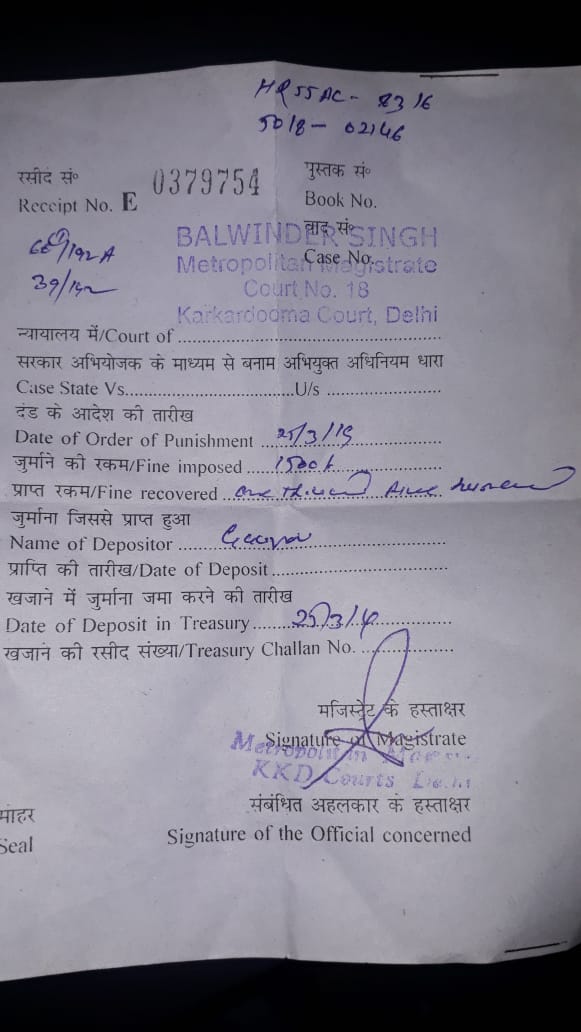 HR55AC - 8316
5018 - 02146
रसीद सं०
Receipt No. E 0379754
पुस्तक सं०
Book No.
वाद सं०
Case No.
66(1)/192A
39/192
BALWINDER SINGH
Metropolitan Magistrate
Court No. 18
Karkardooma Court, Delhi
न्यायालय में/Court of
सरकार अभियोजक के माध्यम से बनाम अभियुक्त अधिनियम धारा
Case State Vs. U/s
दंड के आदेश की तारीख
Date of Order of Punishment 25/3/19
जुर्माने की रकम/Fine imposed 1500/-
प्राप्त रकम/Fine recovered One Thousand Five Hundred
जुर्माना जिससे प्राप्त हुआ
Name of Depositor
प्राप्ति की तारीख/Date of Deposit
खजाने में जुर्माना जमा करने की तारीख
Date of Deposit in Treasury 25/3/19
खजाने की रसीद संख्या/Treasury Challan No.
मजिस्ट्रेट के हस्ताक्षर
Signature of Magistrate
Metropolitan
KKD Courts Delhi
संबंधित अहलकार के हस्ताक्षर
मोहर
Seal
Signature of the Official concerned